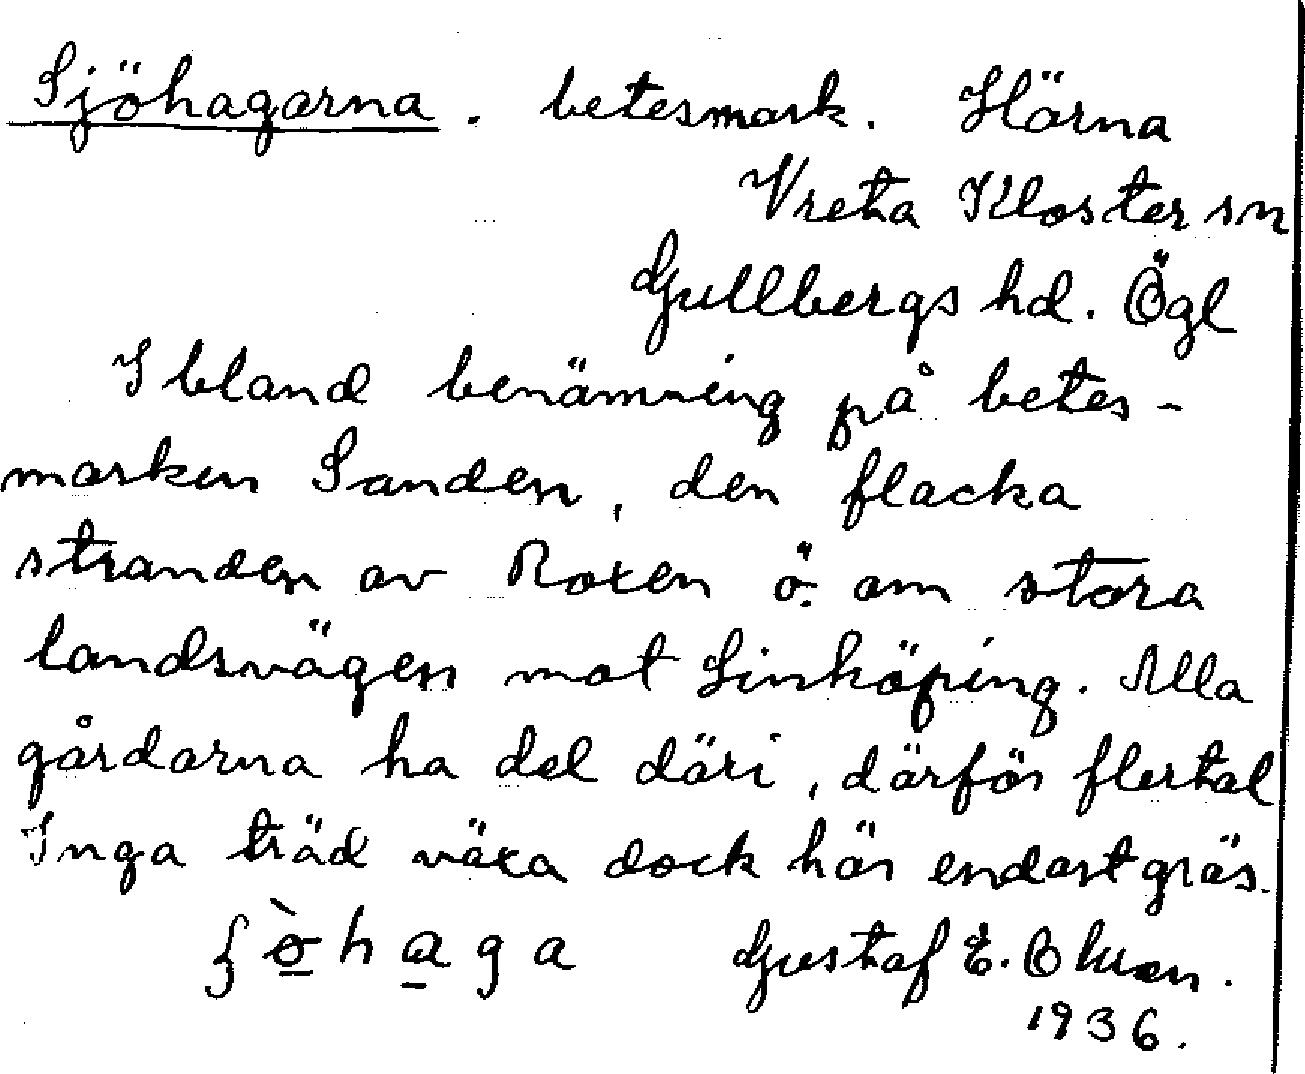 Sjöhagarna. betesmark. Härna
Vreta Kloster sn
Gullbergs hd. Ögl
Ibland benämning på betes-
marken Sanden, den flacka
stranden av Roxen ö. om stora
landsvägen mot Linköping. Alla
gårdarna ha del däri, därför flertal
Inga träd växa dock här endast gräs.
haga Gustaf E.
1936.